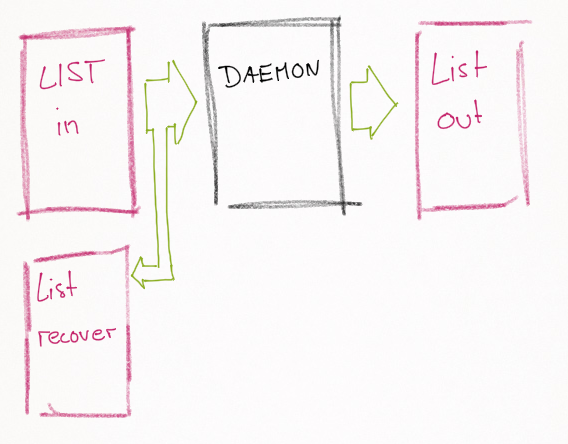 LIST
in
DAEMON
List
out
List
recover